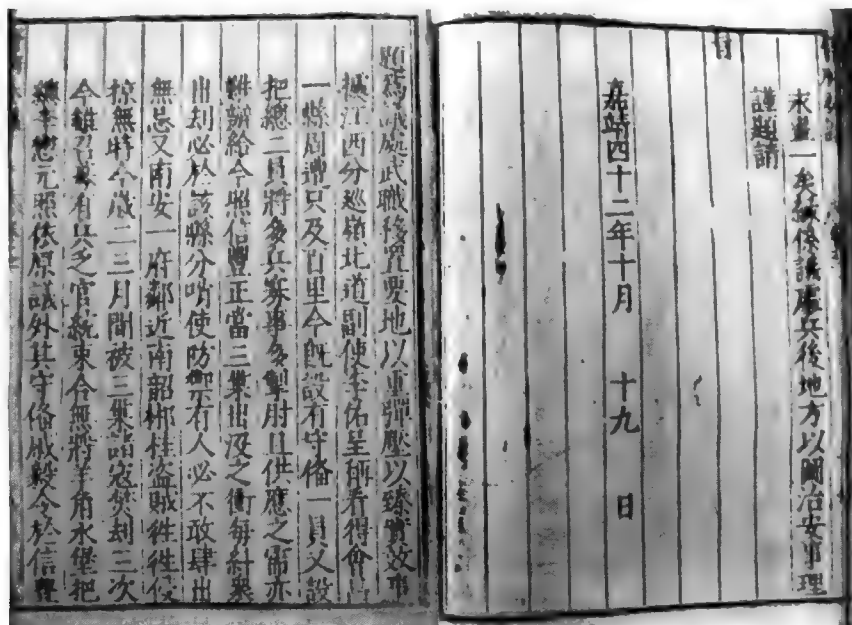 畫一矣緣係議處兵後地方以圖治安事理
謹題請
旨
嘉靖四十二年十月 十九 日
題為議處武職移置要地以重彈壓以臻實效事
據江西分巡嶺北道副使李佑呈稱看得會昌
一縣周遭只及百里今旣設有守備一員又設
把總二員將多兵寡事多掣肘且供應之需亦
辦給今照信豐正當三巢出沒之衝每糾衆
出刦必於該縣分哨使防禦有人必不敢肆出
無忌又南安一府鄰近南韶郴桂盜賊徃徃侵
掠無時今歲二三月間被三巢諸寇焚刦三次
今雖召募有兵乏官統束合無將羊角水堡把
總李懋元照依原議外其守俻成毅令於信豐